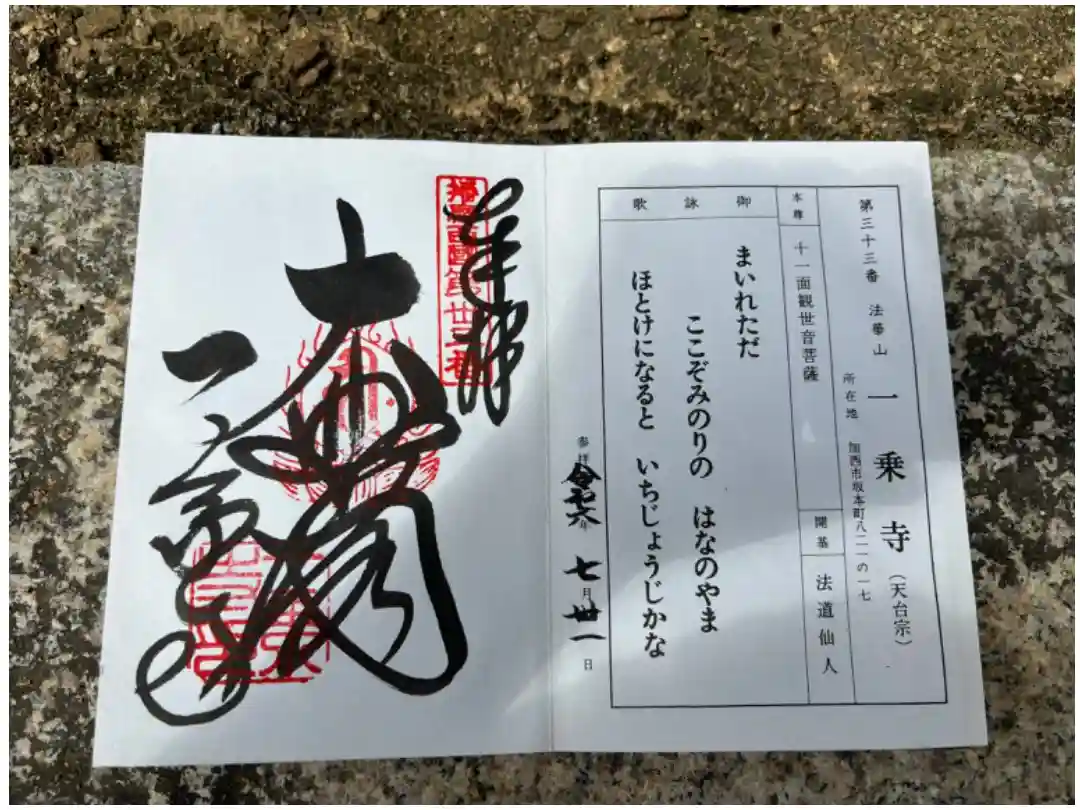 第三十三番 法華山 一乗寺（天台宗）
所在地 加西市坂本町八二一の一七
本尊 十一面観世音菩薩
開基 法道仙人
御詠歌
まいれただ
ここぞみのりの はなのやま
ほとけになると いちじょうじかな
参拝 令和六年 七月 卅一日
奉拝
播磨西國第卅三番
大悲閣
一乗寺